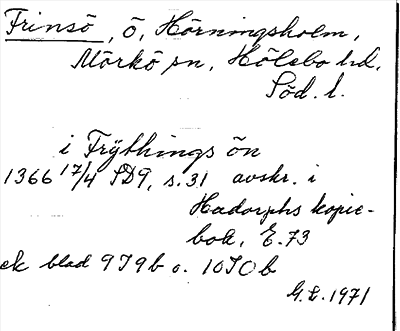 Frinsö, ö, Hörningsholm,
Mörkö sn, Hölebo hd,
Söd. l.
i Frÿthings ön
1366 17/4 SD9, s. 31 avskr. i
Hadorphs kopie-
bok, E. 73
ek blad 9I9b o. 10I0b
G.L. 1971